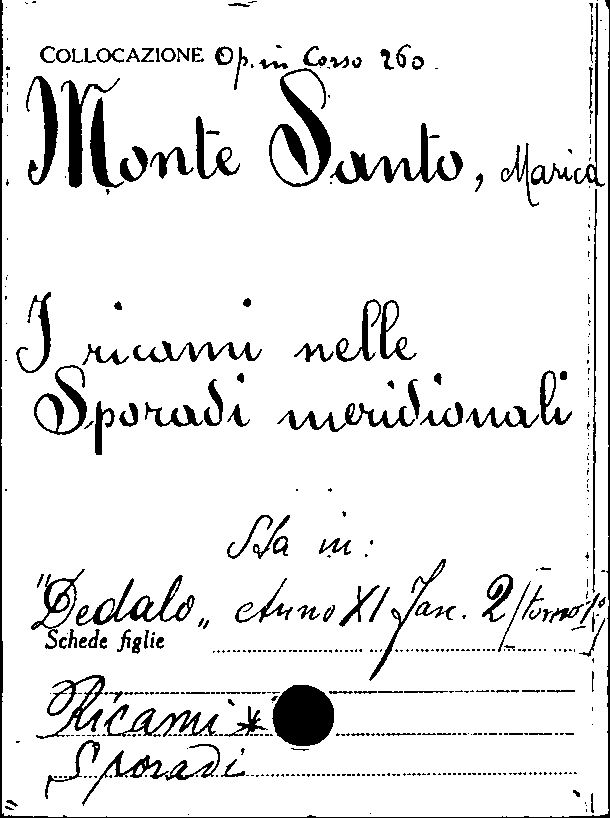 COLLOCAZIONE Op. in Corso 260
Monte Santo, Marica
I ricami nelle
Sporadi meridionali
Sta in:
"Dedalo" Anno XI Fasc. 2 (tomo 1º)
Schede figlie
Ricami *
Sporadi